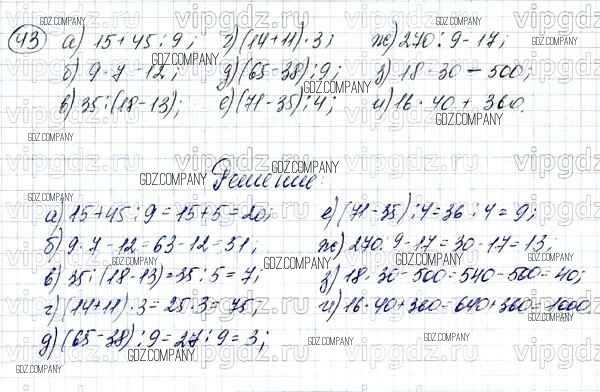 43 а) 15+45:9; г) (14+11)·3; ж) 270:9-17;
б) 9·7-12; д) (65-38):9; з) 18·30-500;
в) 35:(18-13); е) (71-35):4; и) 16·40+360.
Решение:
а) 15+45:9=15+5=20; е) (71-35):4=36:4=9;
б) 9·7-12=63-12=51; ж) 270:9-17=30-17=13;
в) 35:(18-13)=35:5=7; з) 18·30-500=540-500=40;
г) (14+11)·3=25·3=75; и) 16·40+360=640+360=1000.
д) (65-38):9=27:9=3;
vipgdz.ru
GDZ.COMPANY